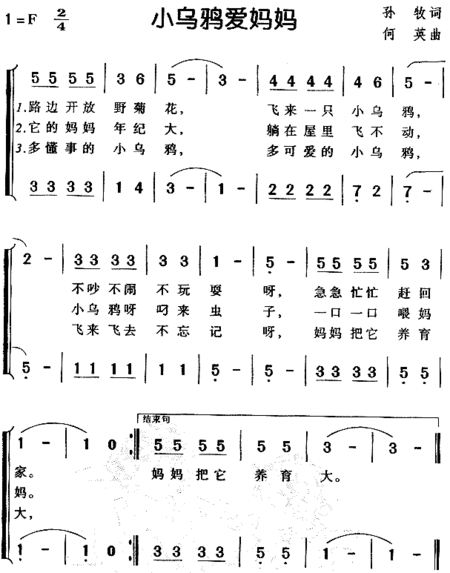 小乌鸦爱妈妈
1=F 2/4
孙 牧 词
何 英 曲
5 5 5 5 | 3 6 | 5 - | 3 - | 4 4 4 4 | 4 6 | 5 - |
1.路边开放 野菊花， 飞来一只 小乌鸦，
2.它的妈妈 年纪大， 躺在屋里 飞不动，
3.多懂事的 小乌鸦， 多可爱的 小乌鸦，
3 3 3 3 | 1 4 | 3 - | 1 - | 2 2 2 2 | 7 2 | 7 - |
2 - | 3 3 3 3 | 3 3 | 1 - | 5 - | 5 5 5 5 | 5 3 |
不吵不闹 不玩耍 呀， 急急忙忙 赶回
小乌鸦呀 叼来虫 子， 一口一口 喂妈
飞来飞去 不忘记 呀， 妈妈把它 养育
5 - | 1 1 1 1 | 1 1 | 5 - | 5 - | 3 3 3 3 | 5 5 |
结束句
1 - | 1 0 :| 5 5 5 5 | 5 5 | 3 - | 3 - |
家。 妈妈把它 养育大。
妈。
大，
1 - | 1 0 :| 3 3 3 3 | 5 5 | 1 - | 1 - |